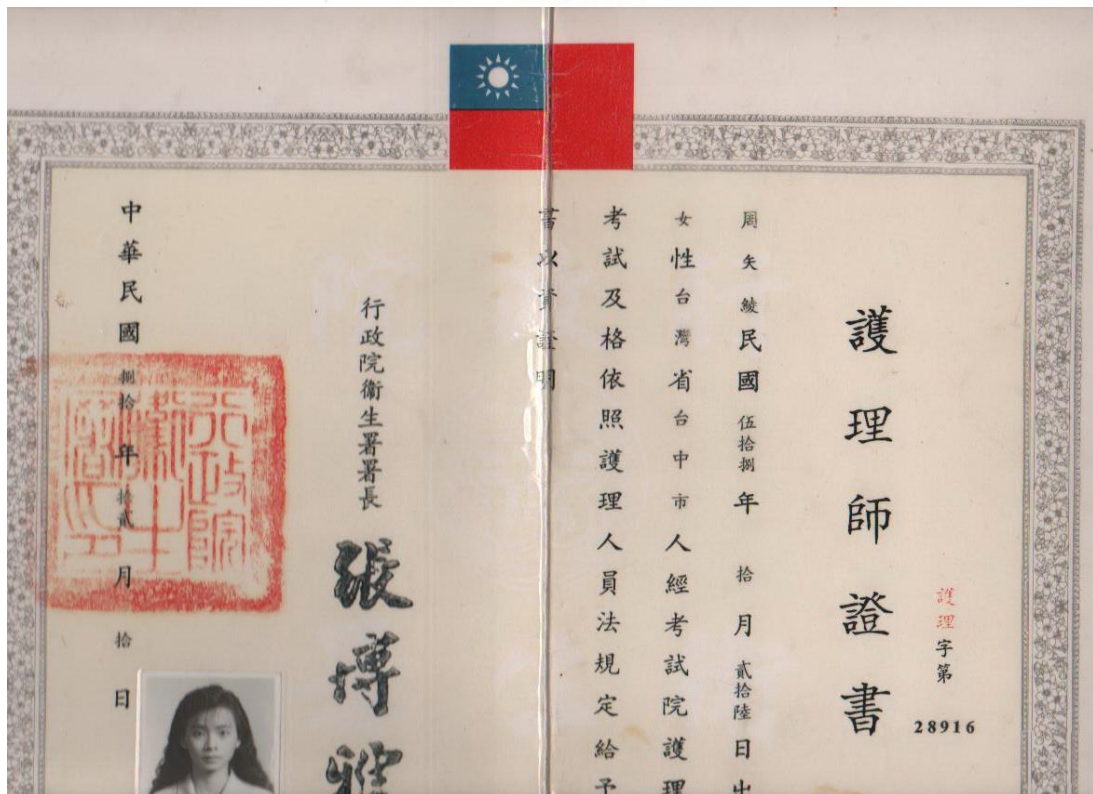 護理字第
28916
護理師證書
周矢綾民國伍拾捌年拾月貳拾陸日出
女性台灣省台中市人經考試院護理
考試及格依照護理人員法規定給予
書以資證明
行政院衞生署署長
張博雅
中華民國捌拾年拾貳月拾日